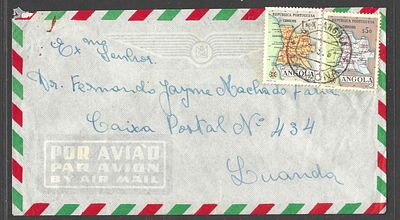 REPUBLICA PORTUGUESA
REPUBLICA PORTUGUESA
ANGOLA
ANGOLA
Exmo
Senhor.
Dr. Fernando Jayme Machado Faria
Caixa Postal Nº 434
Luanda
POR AVIÃO
PAR AVION
BY AIR MAIL